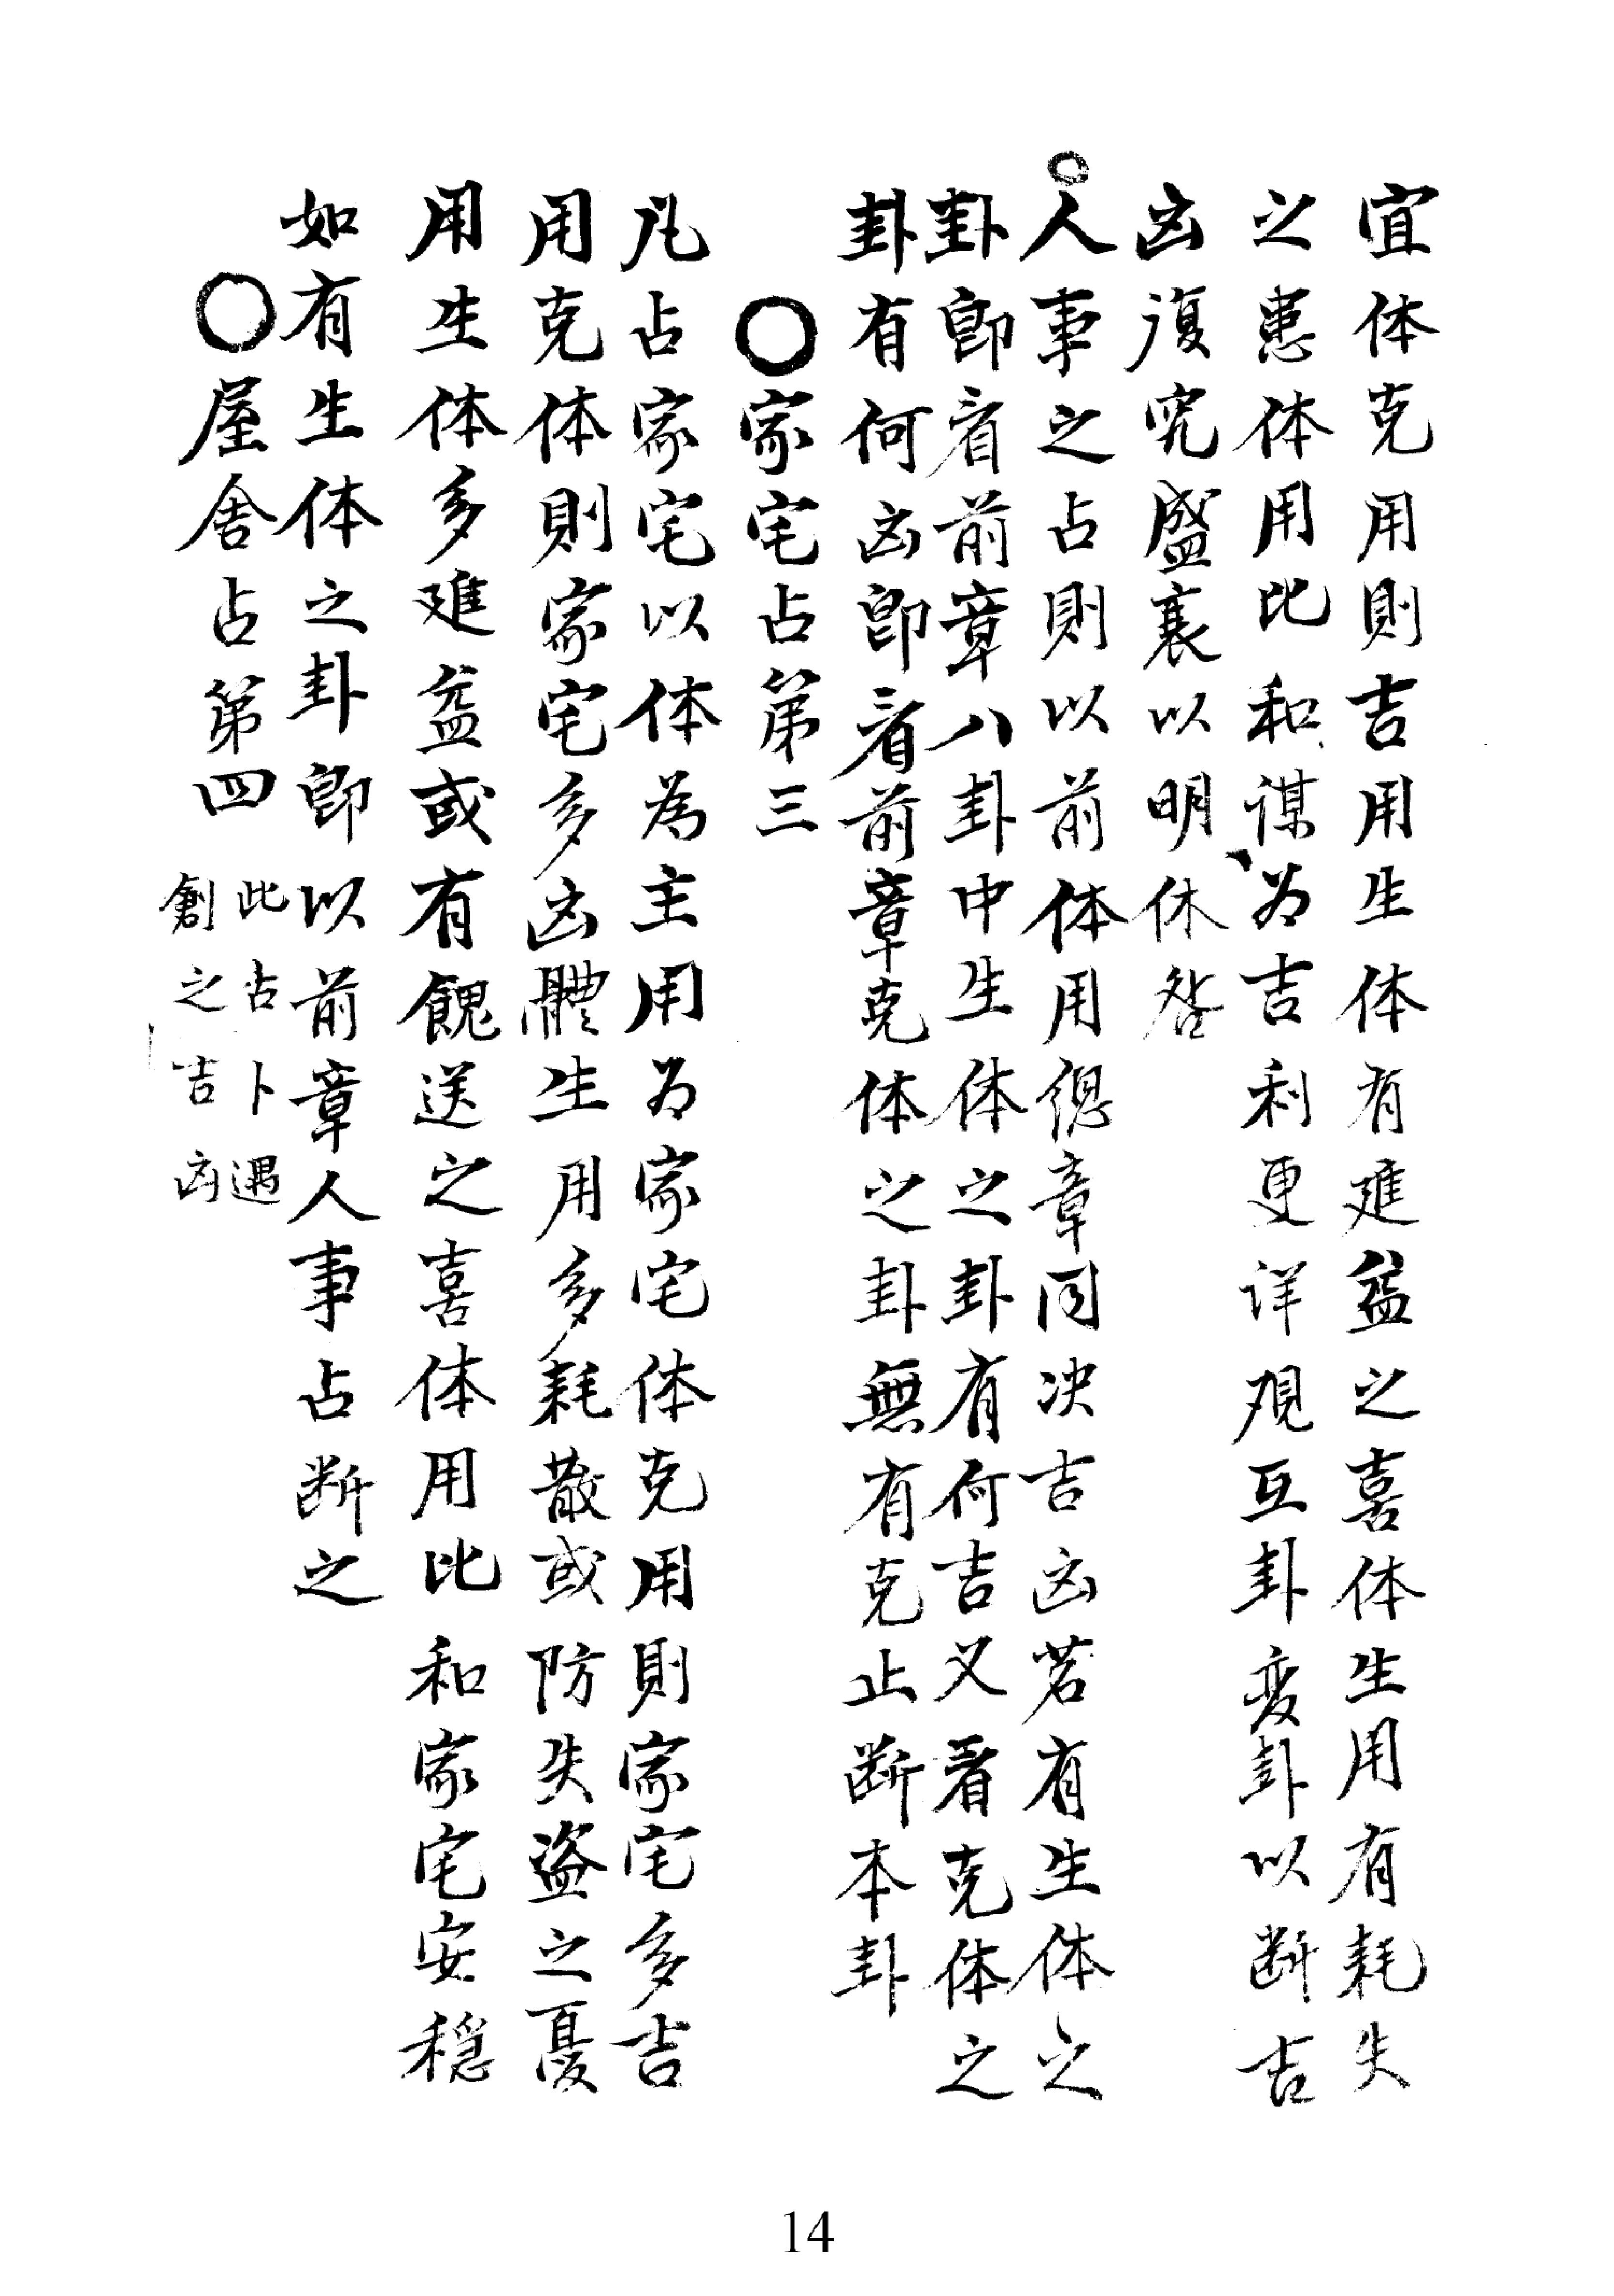 宜体克用則吉用生体有进益之喜体生用有耗失
之患体用比和謀為吉利更详观互卦変卦以断吉
凶復究盛衰以明休咎
○人事之占則以前体用總章同决吉凶若有生体之
卦即看前章八卦中生体之卦有何吉又看克体之
卦有何凶即看前章克体之卦無有克止断本卦
○家宅占第三
凡占家宅以体為主用为家宅体克用則家宅多吉
用克体則家宅多凶體生用多耗散或防失盗之憂
用生体多进益或有餽送之喜体用比和家宅安穏
如有生体之卦即以前章人事占断之
○屋舍占第四
此占卜遇
創之吉凶
14